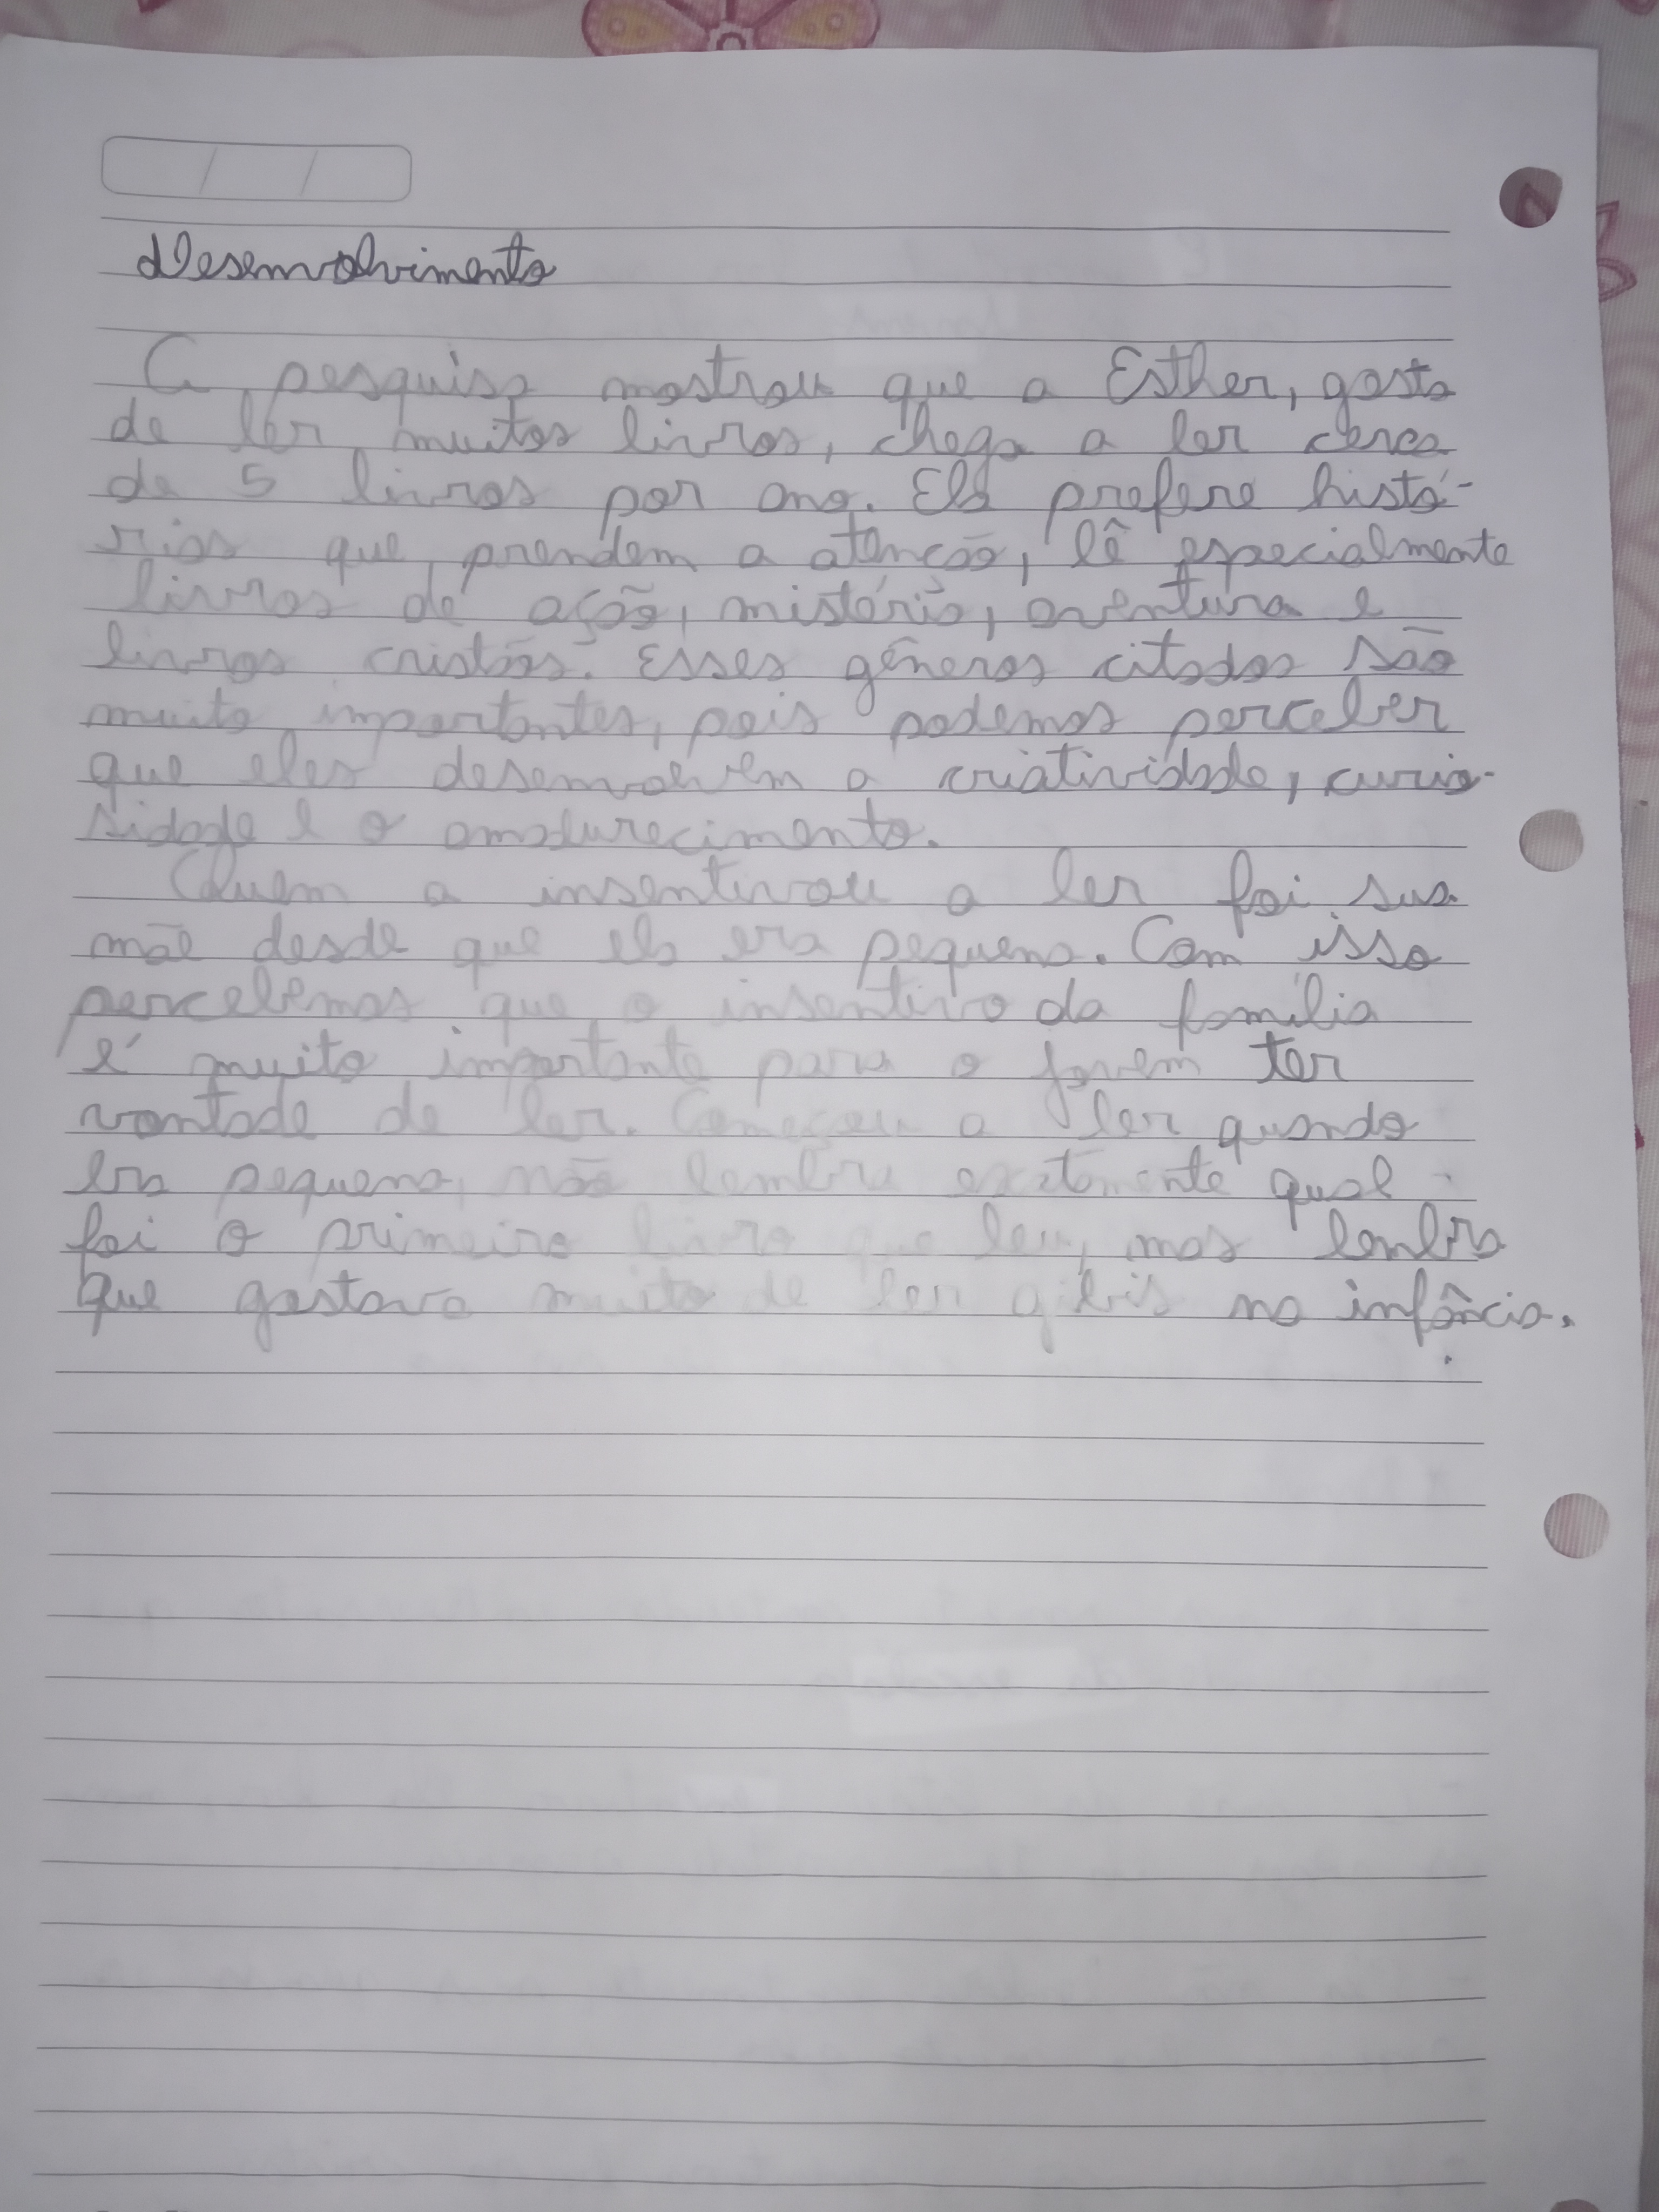 Desenvolvimento
A pesquisa mostrou que a Esther, gosta
de ler muitos livros, chega a ler cerca
de 5 livros por ano. Ela prefere histó-
rias que prendem a atenção, lê especialmente
livros de ação, mistério, aventura e
livros cristãos. Esses gêneros citados são
muito importantes, pois podemos perceber
que eles desenvolvem a criatividade, curio-
sidade e o amadurecimento.
Quem a insentivou a ler foi sua
mãe desde que ela era pequena. Com isso
percebemos que o insentivo da família
é muito importante para o jovem ter
vontade de ler. Começou a ler quando
era pequena, não lembra exatamente qual
foi o primeiro livro que leu, mas lembra
que gostava muito de ler gibis na infância.